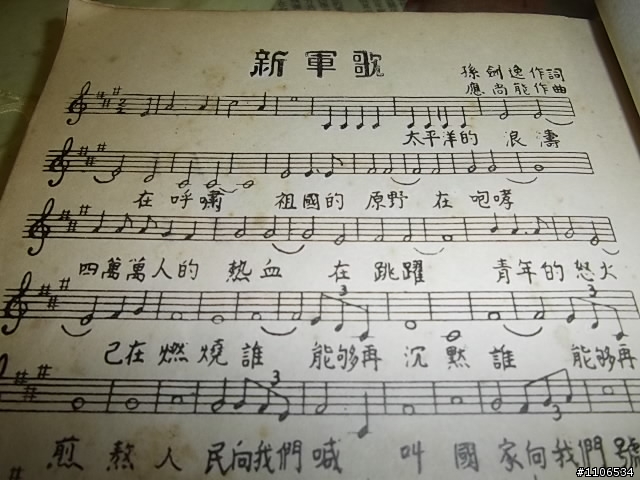 新軍歌
孫劍逸作詞
應尚能作曲
太平洋的 浪濤
在呼嘯 祖國的 原野 在 咆哮
四萬萬人的 熱血 在 跳躍 青年的 怒火
己在燃燒誰 能够再 沉默 誰 能够再
煎熬 人民向我們喊 叫 國家向我們號
#1106534